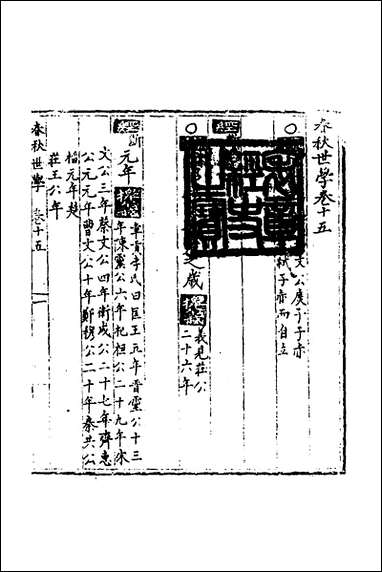 春秋世學卷十五
文公庶子子赤
弒子赤而自立
表章
經史
之寶
經
歲
義見莊公
二十六年
經
元年
李氏曰匡王五年晉靈公十三
年陳靈公六年杞桓公二十九年宋
文公三年蔡文公四年衛成公二十七年齊惠
公元元年曹文公十年鄭穆公二十年秦共公
稻元年楚
莊王六年
春秋世學 卷十五 一